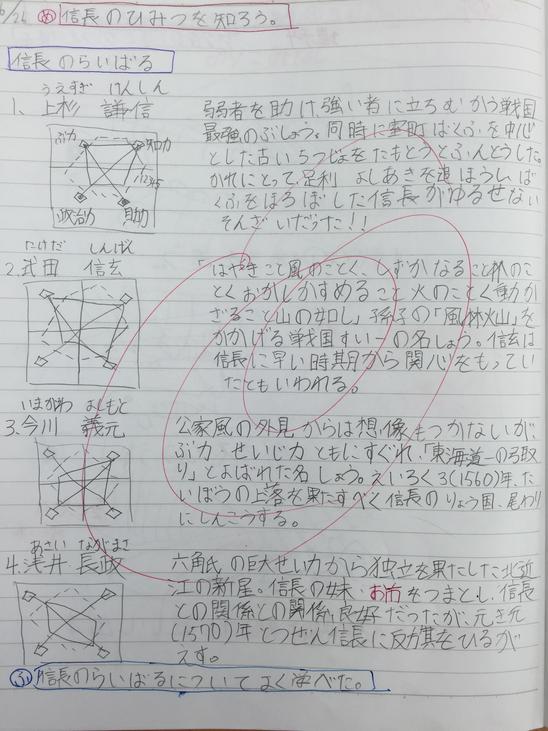 6/26 め 信長のひみつを知ろう。
信長のらいばる
うえすぎ けんしん
1、上杉 謙信
弱者を助け、強い者に立ちむかう戦国
最強のぶしょう。同時に室町ばくふを中心
とした古いちつじょをたもとうとふんとうした。
かれにとって、足利 よしあきを追ほうしば
くふをほろぼした信長がゆるせない
そんざいだった!!
ぶ力
知力
12345
政治力
たけだ しんげん
2.武田 信玄
「はやきこと風のごとく、しずかなること林のご
とくおかしかすめること火のごとく動か
ざること山の如し」孫子の「風林火山」を
かかげる戦国すい一の名しょう。信玄は
信長に早い時期から関心をもってい
たともいわれる。
いまがわ よしもと
3.今川 義元
公家風の外見からは想像もつかないが、
ぶ力 せいじ力 ともにすぐれ、「東海道一の弓取
り」とよばれた名しょう。えいろく3(1560)年、た
いぼうの上落を果たすべく信長のりょう国、尾わり
にしんこうする。
あさい ながまさ
4.浅井 長政
六角氏の巨大せい力から独立を果たした北近
江の新星。信長の妹 お市をつまとし、信長
との関係との関係良好だったが、元き元
(1570)年とつぜん信長に反旗をひるが
えす。
ふ 信長のらいばるについてよく学べた。